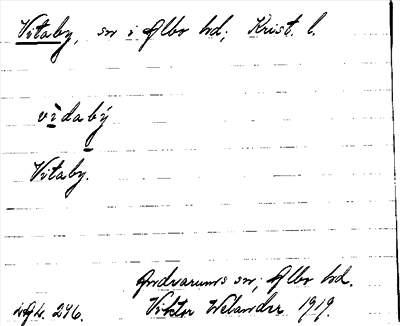 Vitaby, sn i Albo hd; Krist. l.
vìdabý
Vitaby.
Andrarums sn; Albo hd.
Viktor Welander 1919.
276.